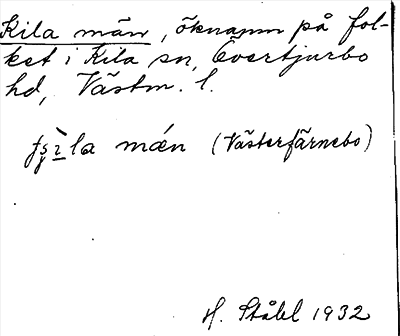 Kila män, öknamn på fol-
ket i Kila sn, Övertjurbo
hd, Västm. l.
la mæ̃n (Västerfärnebo)
H. Ståhl 1932